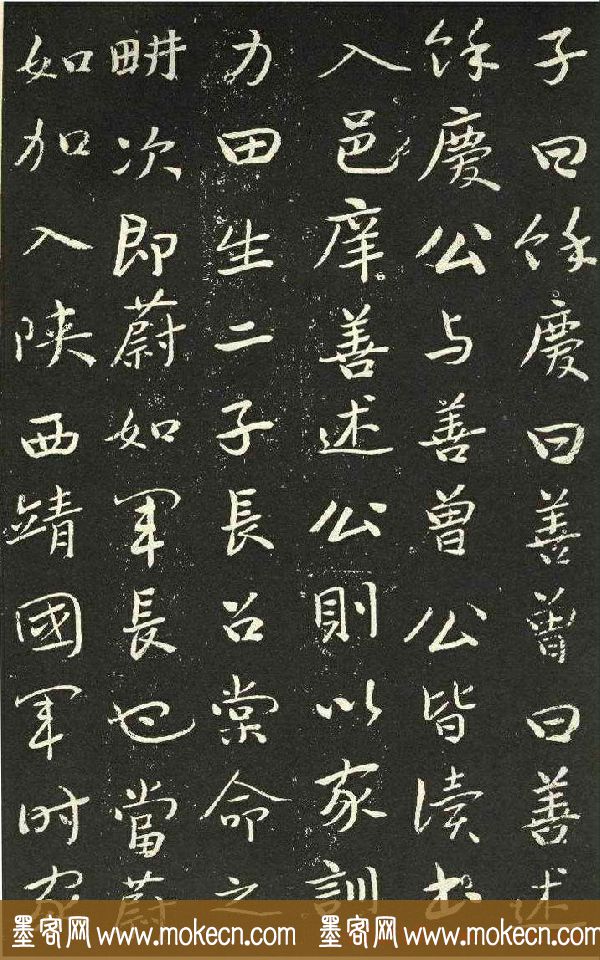 子曰餘慶曰善曾曰善述
餘慶公与善曾公皆讀书
入邑庠善述公則以家訓
力田生二子長召棠命之
畊次即蔚如軍長也當蔚
如加入陝西靖國軍时家
墨客网 www.mokecn.com 墨客网 www.mokecn.com